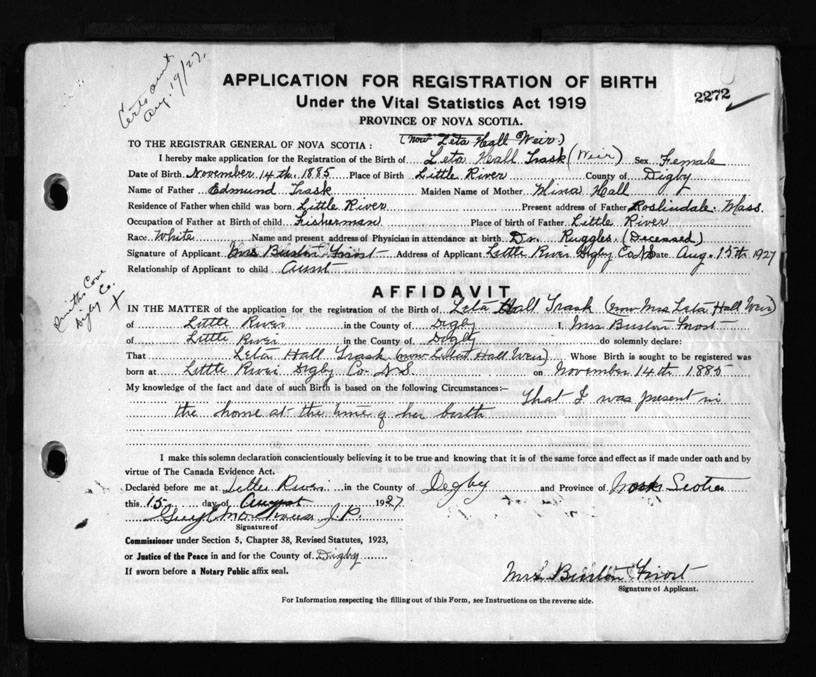 Certs sent
Aug. 19/27.
APPLICATION FOR REGISTRATION OF BIRTH
2272
Under the Vital Statistics Act 1919
PROVINCE OF NOVA SCOTIA.
(now Leta Hall Weir.)
TO THE REGISTRAR GENERAL OF NOVA SCOTIA:
I hereby make application for the Registration of the Birth of Leta Hall Trask (Weir) Sex Female
Date of Birth November 14th. 1885 Place of Birth Little River County of Digby
Name of Father Edmund Trask Maiden Name of Mother Mina Hall
Residence of Father when child was born Little River Present address of Father Roslindale. Mass.
Occupation of Father at Birth of child Fisherman Place of birth of Father Little River
Race White Name and present address of Physician in attendance at birth Dr. Ruggles (Deceased)
Signature of Applicant Mrs Frost Address of Applicant Little River Digby Co. N.S Date Aug. 15th 1927
Relationship of Applicant to child Aunt
Smiths Cove
Digby Co.
X
AFFIDAVIT
IN THE MATTER of the application for the registration of the Birth of Leta Hall Trask (now Mrs Leta Hall Weir)
of Little River in the County of Digby I, Mrs Frost
of Little River in the County of Digby do solemnly declare:
That Leta Hall Trask (now Hall Weir) Whose Birth is sought to be registered was
born at Little River Digby Co. N.S. on November 14th 1885
My knowledge of the fact and date of such Birth is based on the following Circumstances:— That I was present in
the home at the time of her birth
I make this solemn declaration conscientiously believing it to be true and knowing that it is of the same force and effect as if made under oath and by
virtue of The Canada Evidence Act.
Declared before me at Little River in the County of Digby and Province of Nova Scotia
this 15 day of August 1927
J.P.
Signature of
Commissioner under Section 5, Chapter 38, Revised Statutes, 1923,
or Justice of the Peace in and for the County of Digby
If sworn before a Notary Public affix seal.
Mrs Frost
Signature of Applicant.
For Information respecting the filling out of this Form, see Instructions on the reverse side.